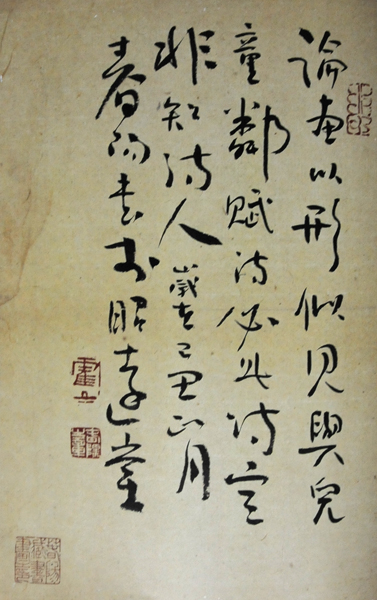 論畫以形似見與兒
童鄰賦詩必此詩定
非知詩人歲在己丑正月
春陽書於昭達堂
霍